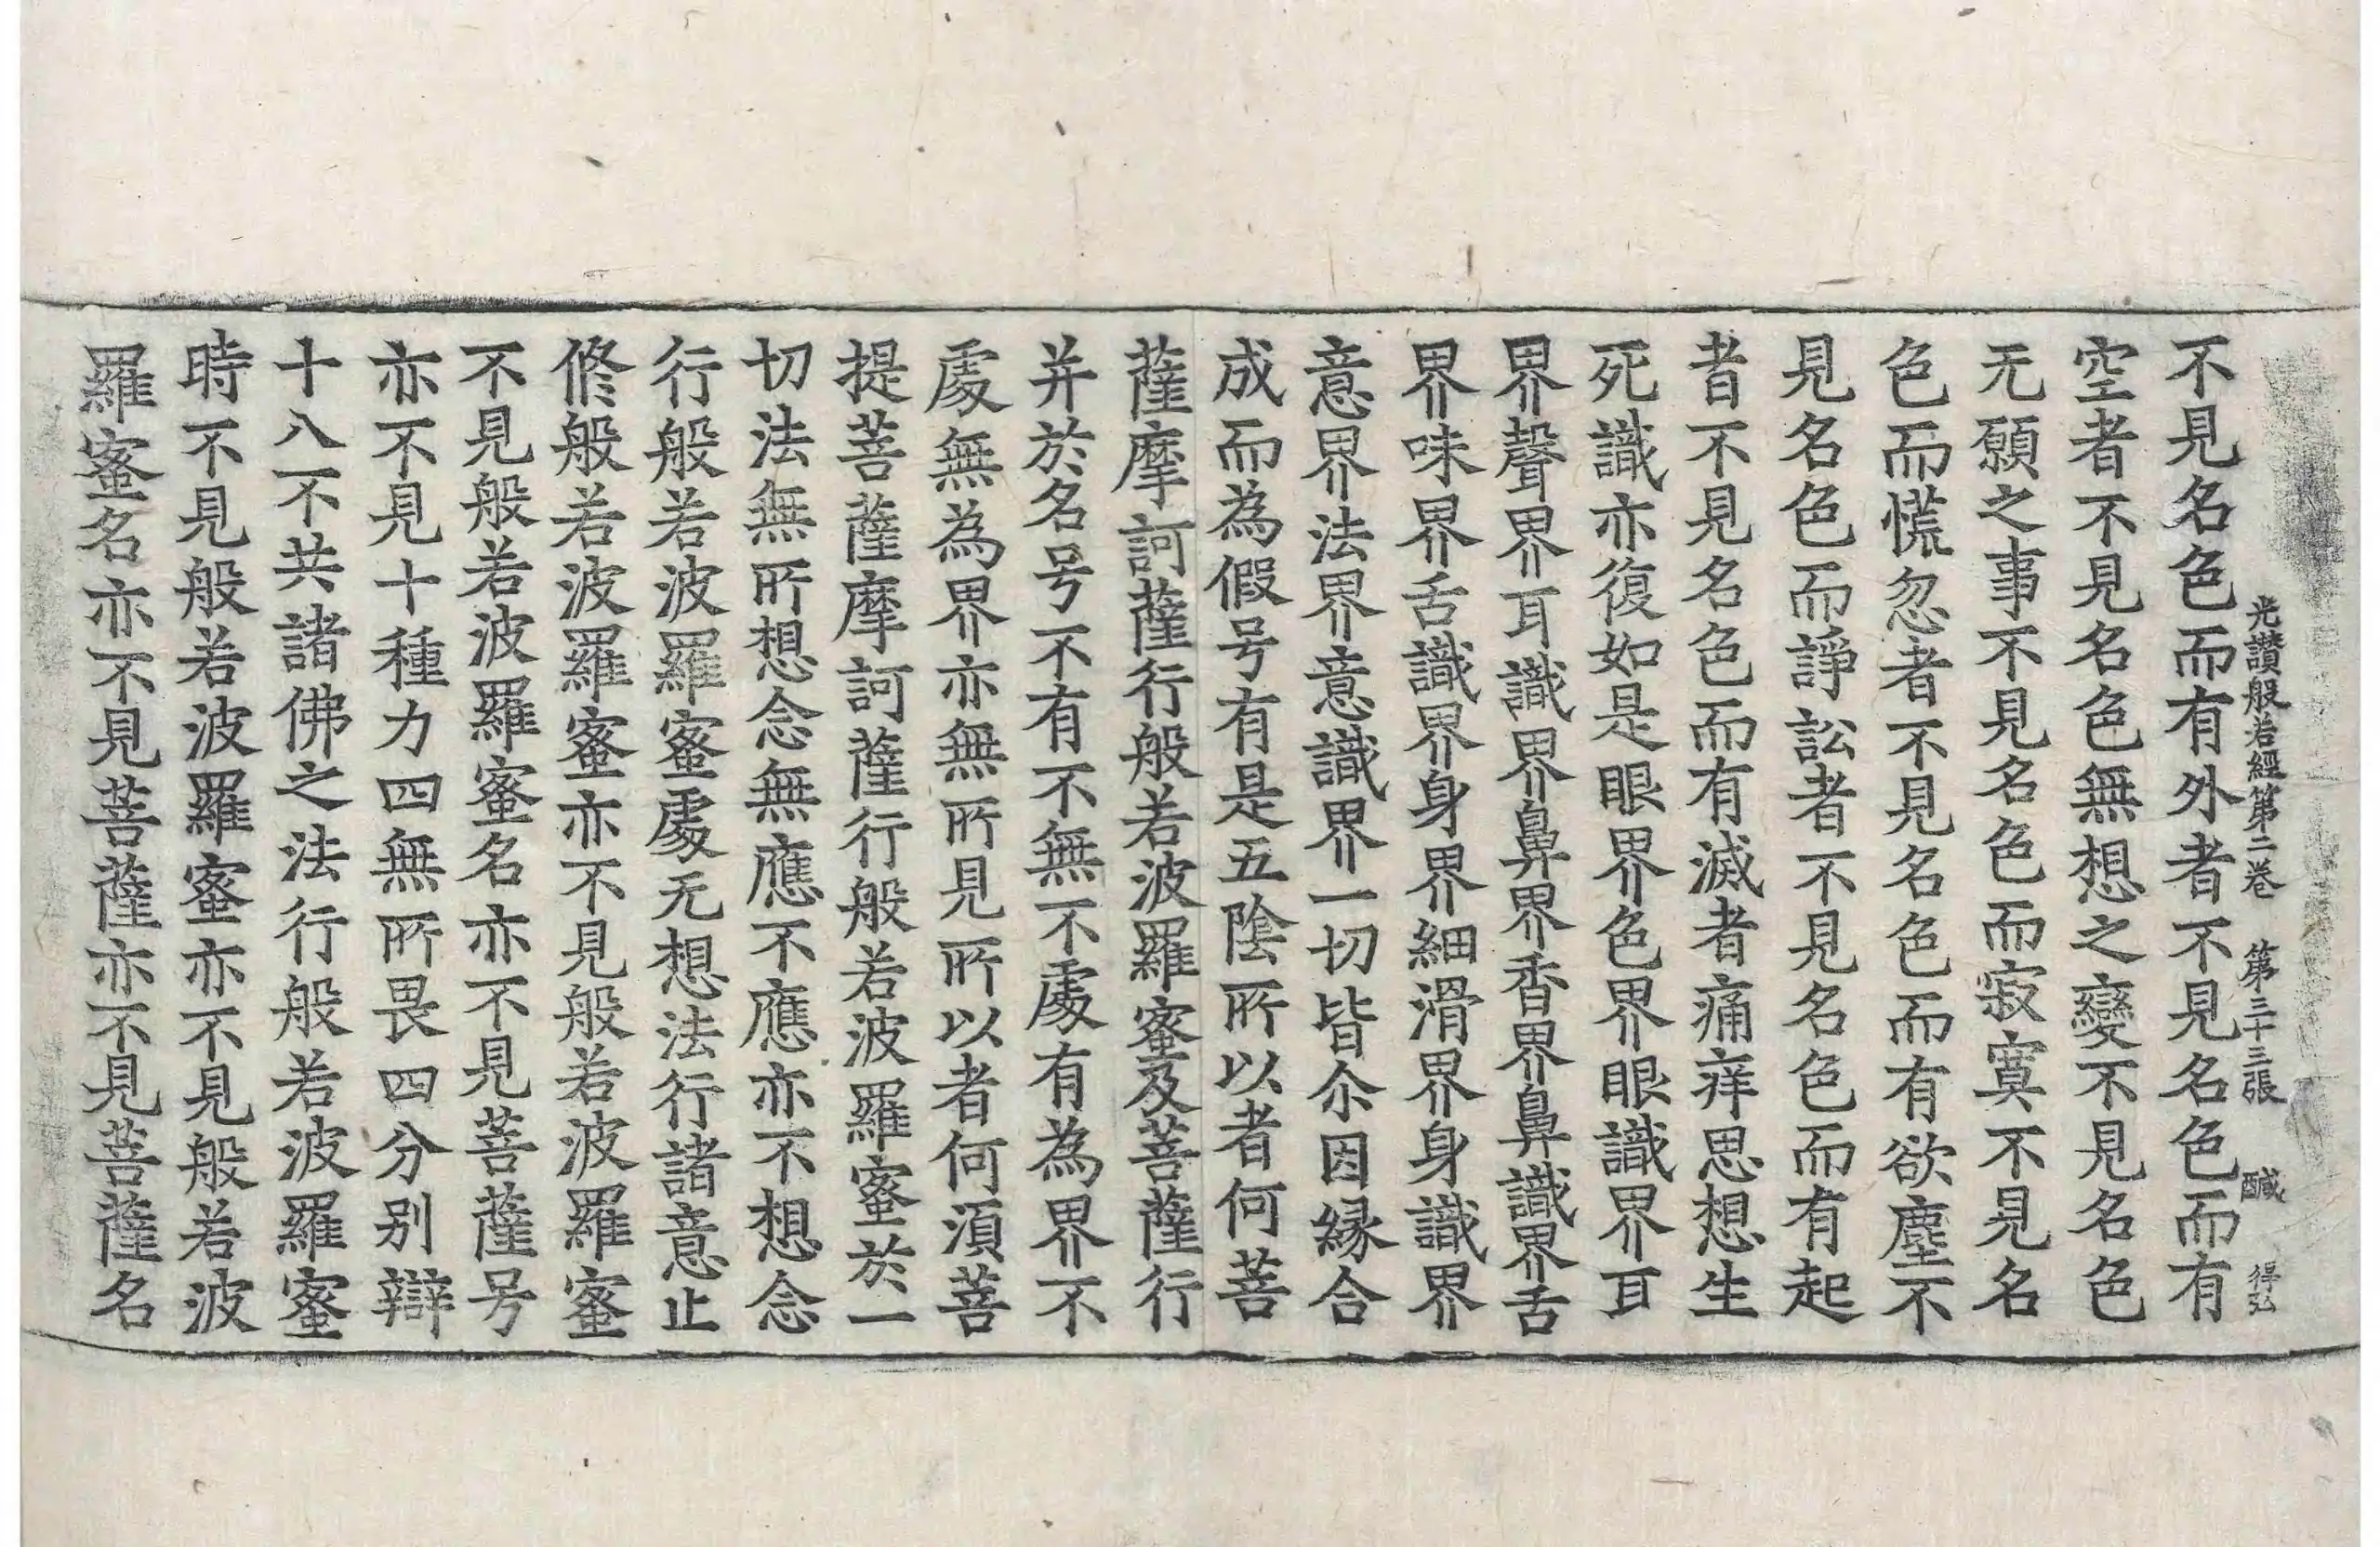 光讃般若經第二卷　第三十三張　醎　得弘
不見名色而有外者不見名色而有
空者不見名色無想之變不見名色
无願之事不見名色而寂寞不見名
色而慌忽者不見名色而有欲塵不
見名色而諍訟者不見名色而有起
者不見名色而有滅者痛痒思想生
死識亦復如是眼界色界眼識界耳
界聲界耳識界鼻界香界鼻識界舌
界味界舌識界身界細滑界身識界
意界法界意識界一切皆尒因縁合
成而為假号有是五陰所以者何菩
薩摩訶薩行般若波羅蜜及菩薩行
并於名号不有不無不處有為界不
處無為界亦無所見所以者何須菩
提菩薩摩訶薩行般若波羅蜜於一
切法無所想念無應不應亦不想念
行般若波羅蜜處无想法行諸意止
修般若波羅蜜亦不見般若波羅蜜
不見般若波羅蜜名亦不見菩薩号
亦不見十種力四無所畏四分别辯
十八不共諸佛之法行般若波羅蜜
時不見般若波羅蜜亦不見般若波
羅蜜名亦不見菩薩亦不見菩薩名